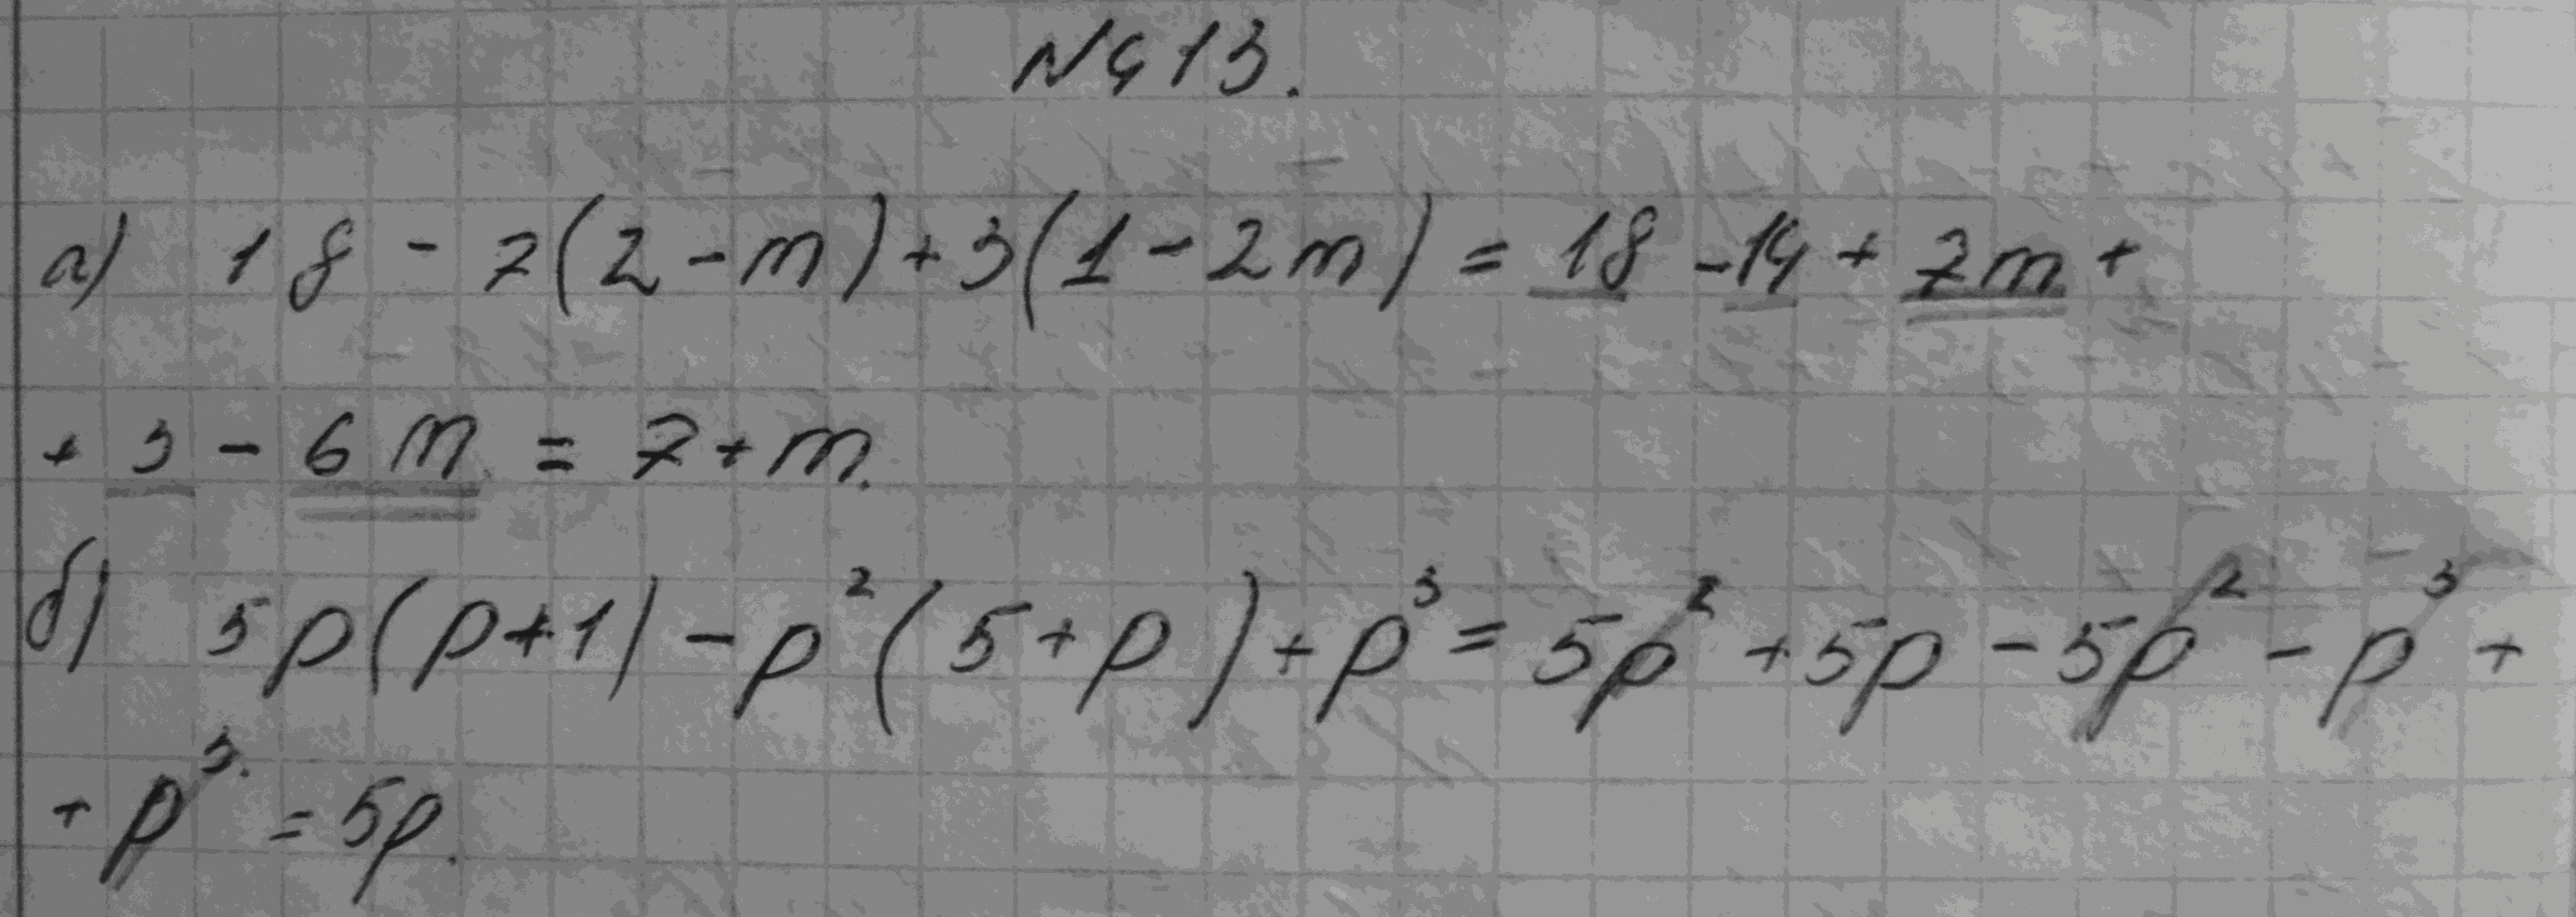 №413.
а) 18 - 7(2 - m) + 3(1 - 2m) = 18 - 14 + 7m +
+ 3 - 6m = 7 + m.
б) 5p(p+1) - p²(5 + p) + p³ = 5p² + 5p - 5p² - p³ +
+ p³. = 5p.